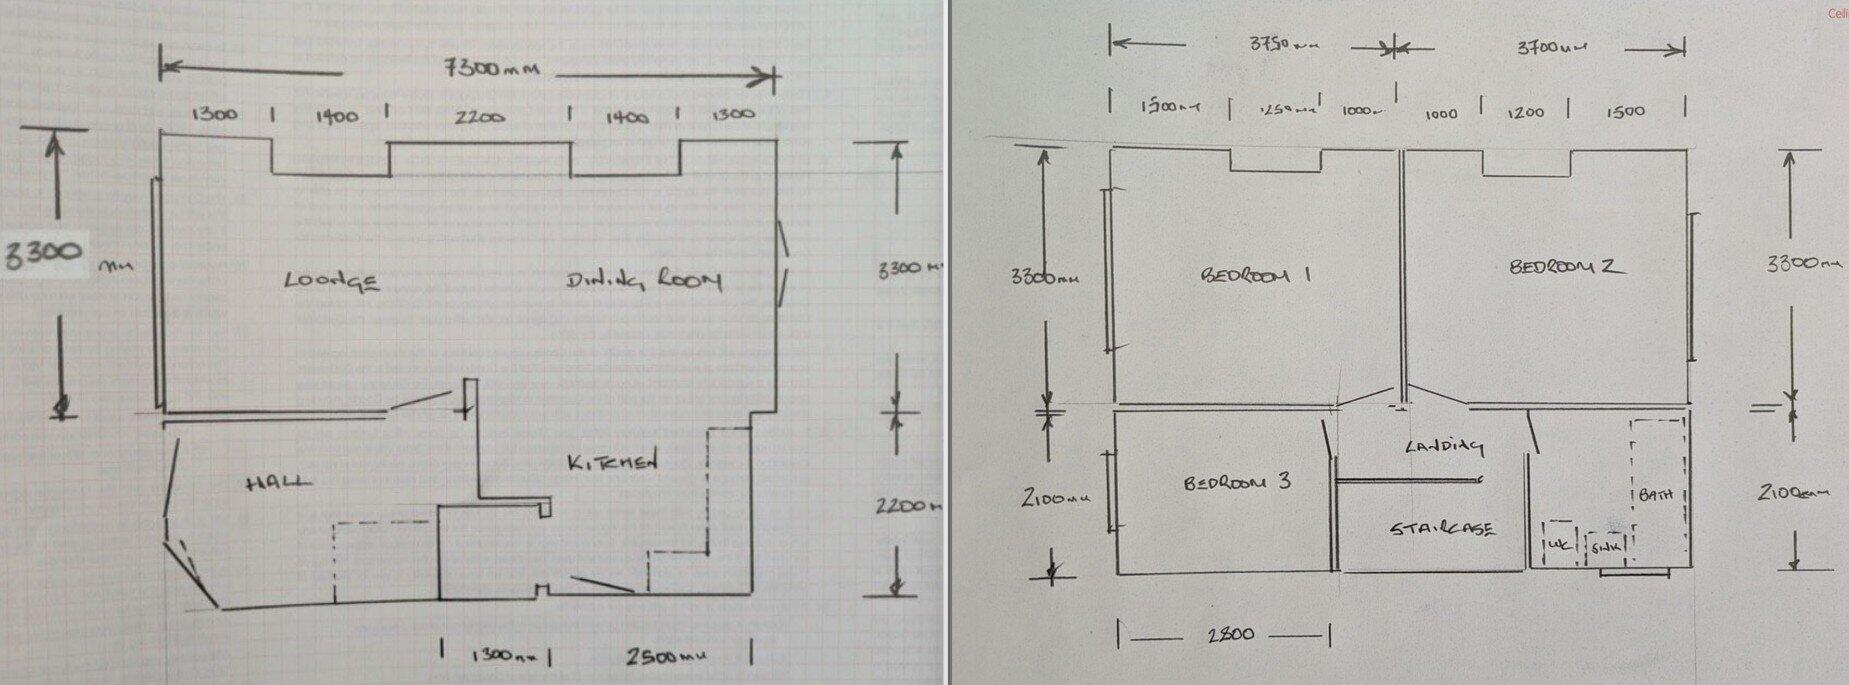 7300mm
1300 1400 2200 1400 1300
3300 mm
LOONGE
DINING ROOM
3300 m
KITCHEN
HALL
2200 m
1300mm 2500mm
Ceili
3750mm 3700mm
1500mm 1250mm 1000m 1000 1200 1500
3300mm
BEDROOM 1
BEDROOM 2
3300mm
LANDING
BEDROOM 3
2100mm
BATH
2100mm
STAIRCASE
WC SINK
2800